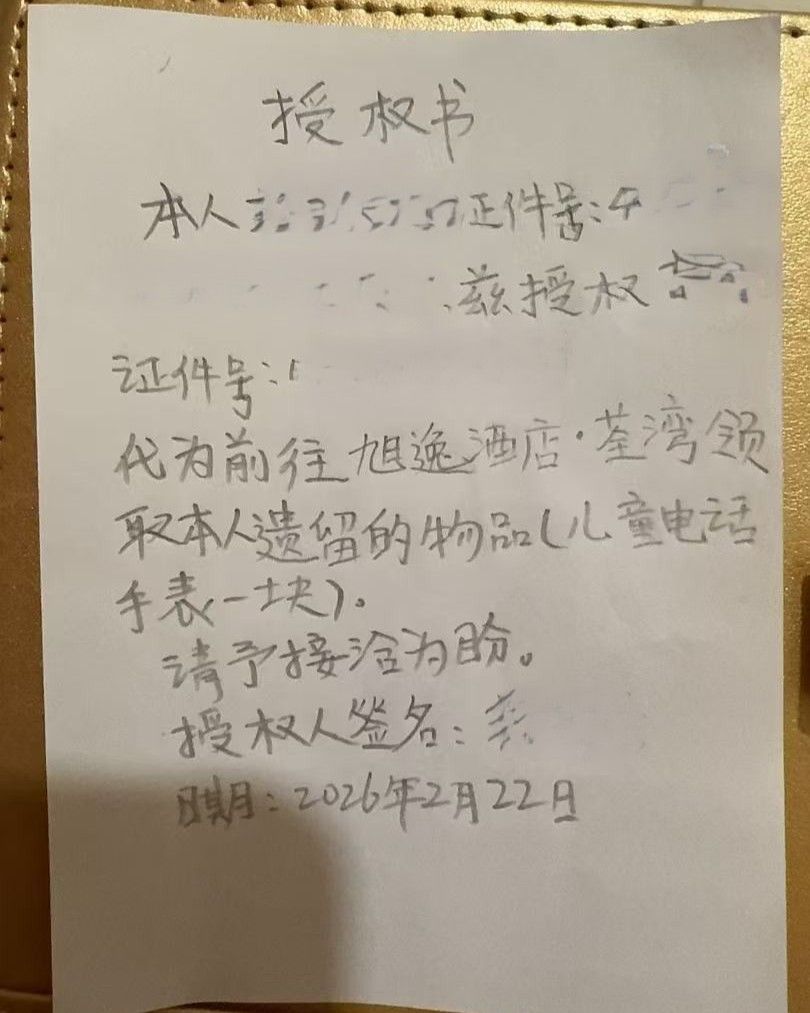 授权书
本人 证件号:4
兹授权
证件号:1
代为前往旭逸酒店·荃湾领
取本人遗留的物品(儿童电话
手表(一块)。
请予接洽为盼。
授权人签名:
日期:2026年2月22日